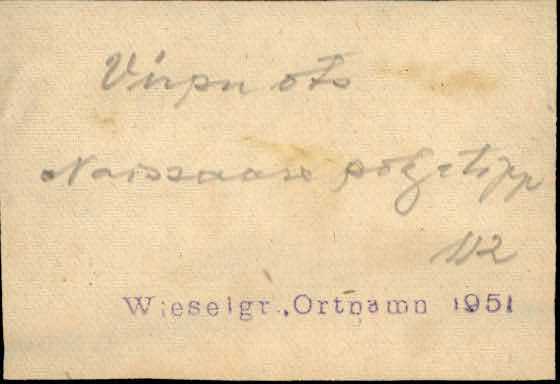 Virpu ots
Naissaare põhjatipp
112
Wieselgr. Ortnamn 1951